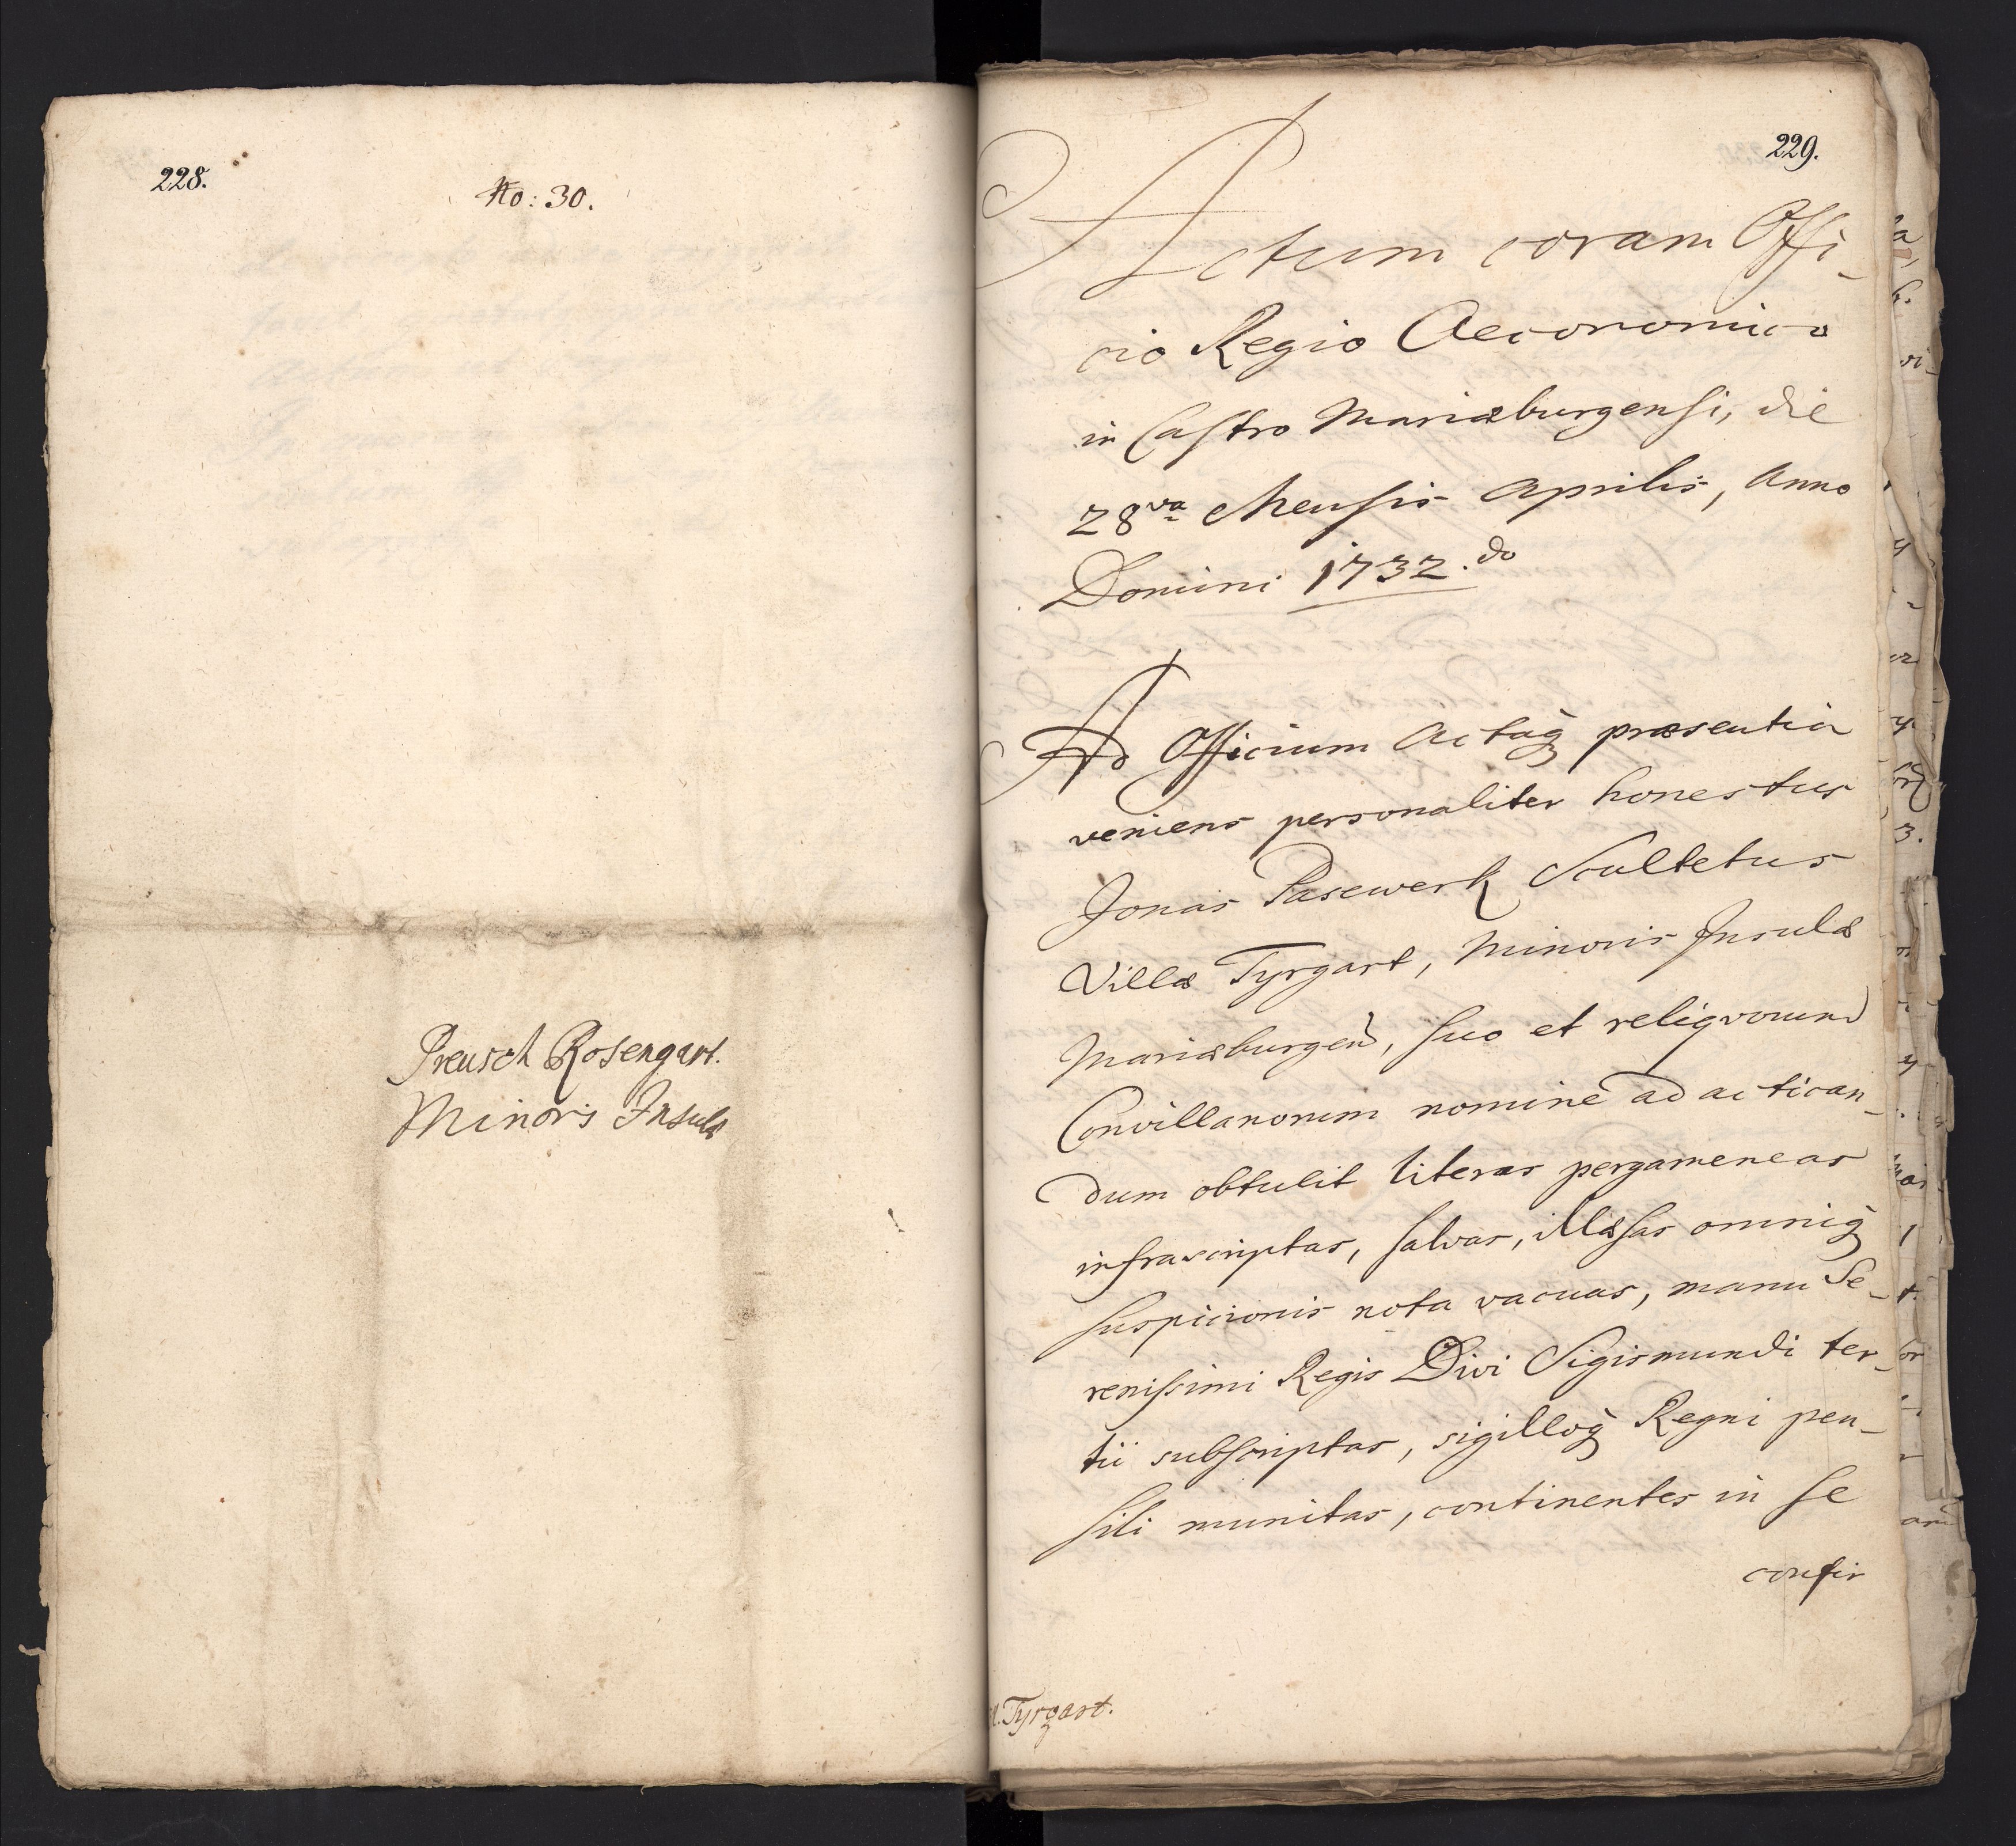 228.
No: 30.
Preusch Rosengart.
Minoris Insulæ
229.
Actum coram Offi-
cio Regio Oeconomico
in Castro Mariæburgensi, die
28va Mensis Aprilis, Anno
Domini 1732.do
Ad Officium Actaq́ præsentia
veniens personaliter honestus
Jonas Pasewerk Scultetus
Villæ Tyrgart, Minoris Insulæ
Mariæburgen̄, suo et reliqvorum
Convillanorum nomine ad actican-
dum obtulit literas pergameneas
infrascriptas, salvas, illæsas omniq́
suspicionis nota vacuas, manu Se-
renissimi Regis Divi Sigismundi ter-
tii subscriptas, sigilloq́ Regni pen-
sili munitas, continentes in se
confir
Tyrgart.